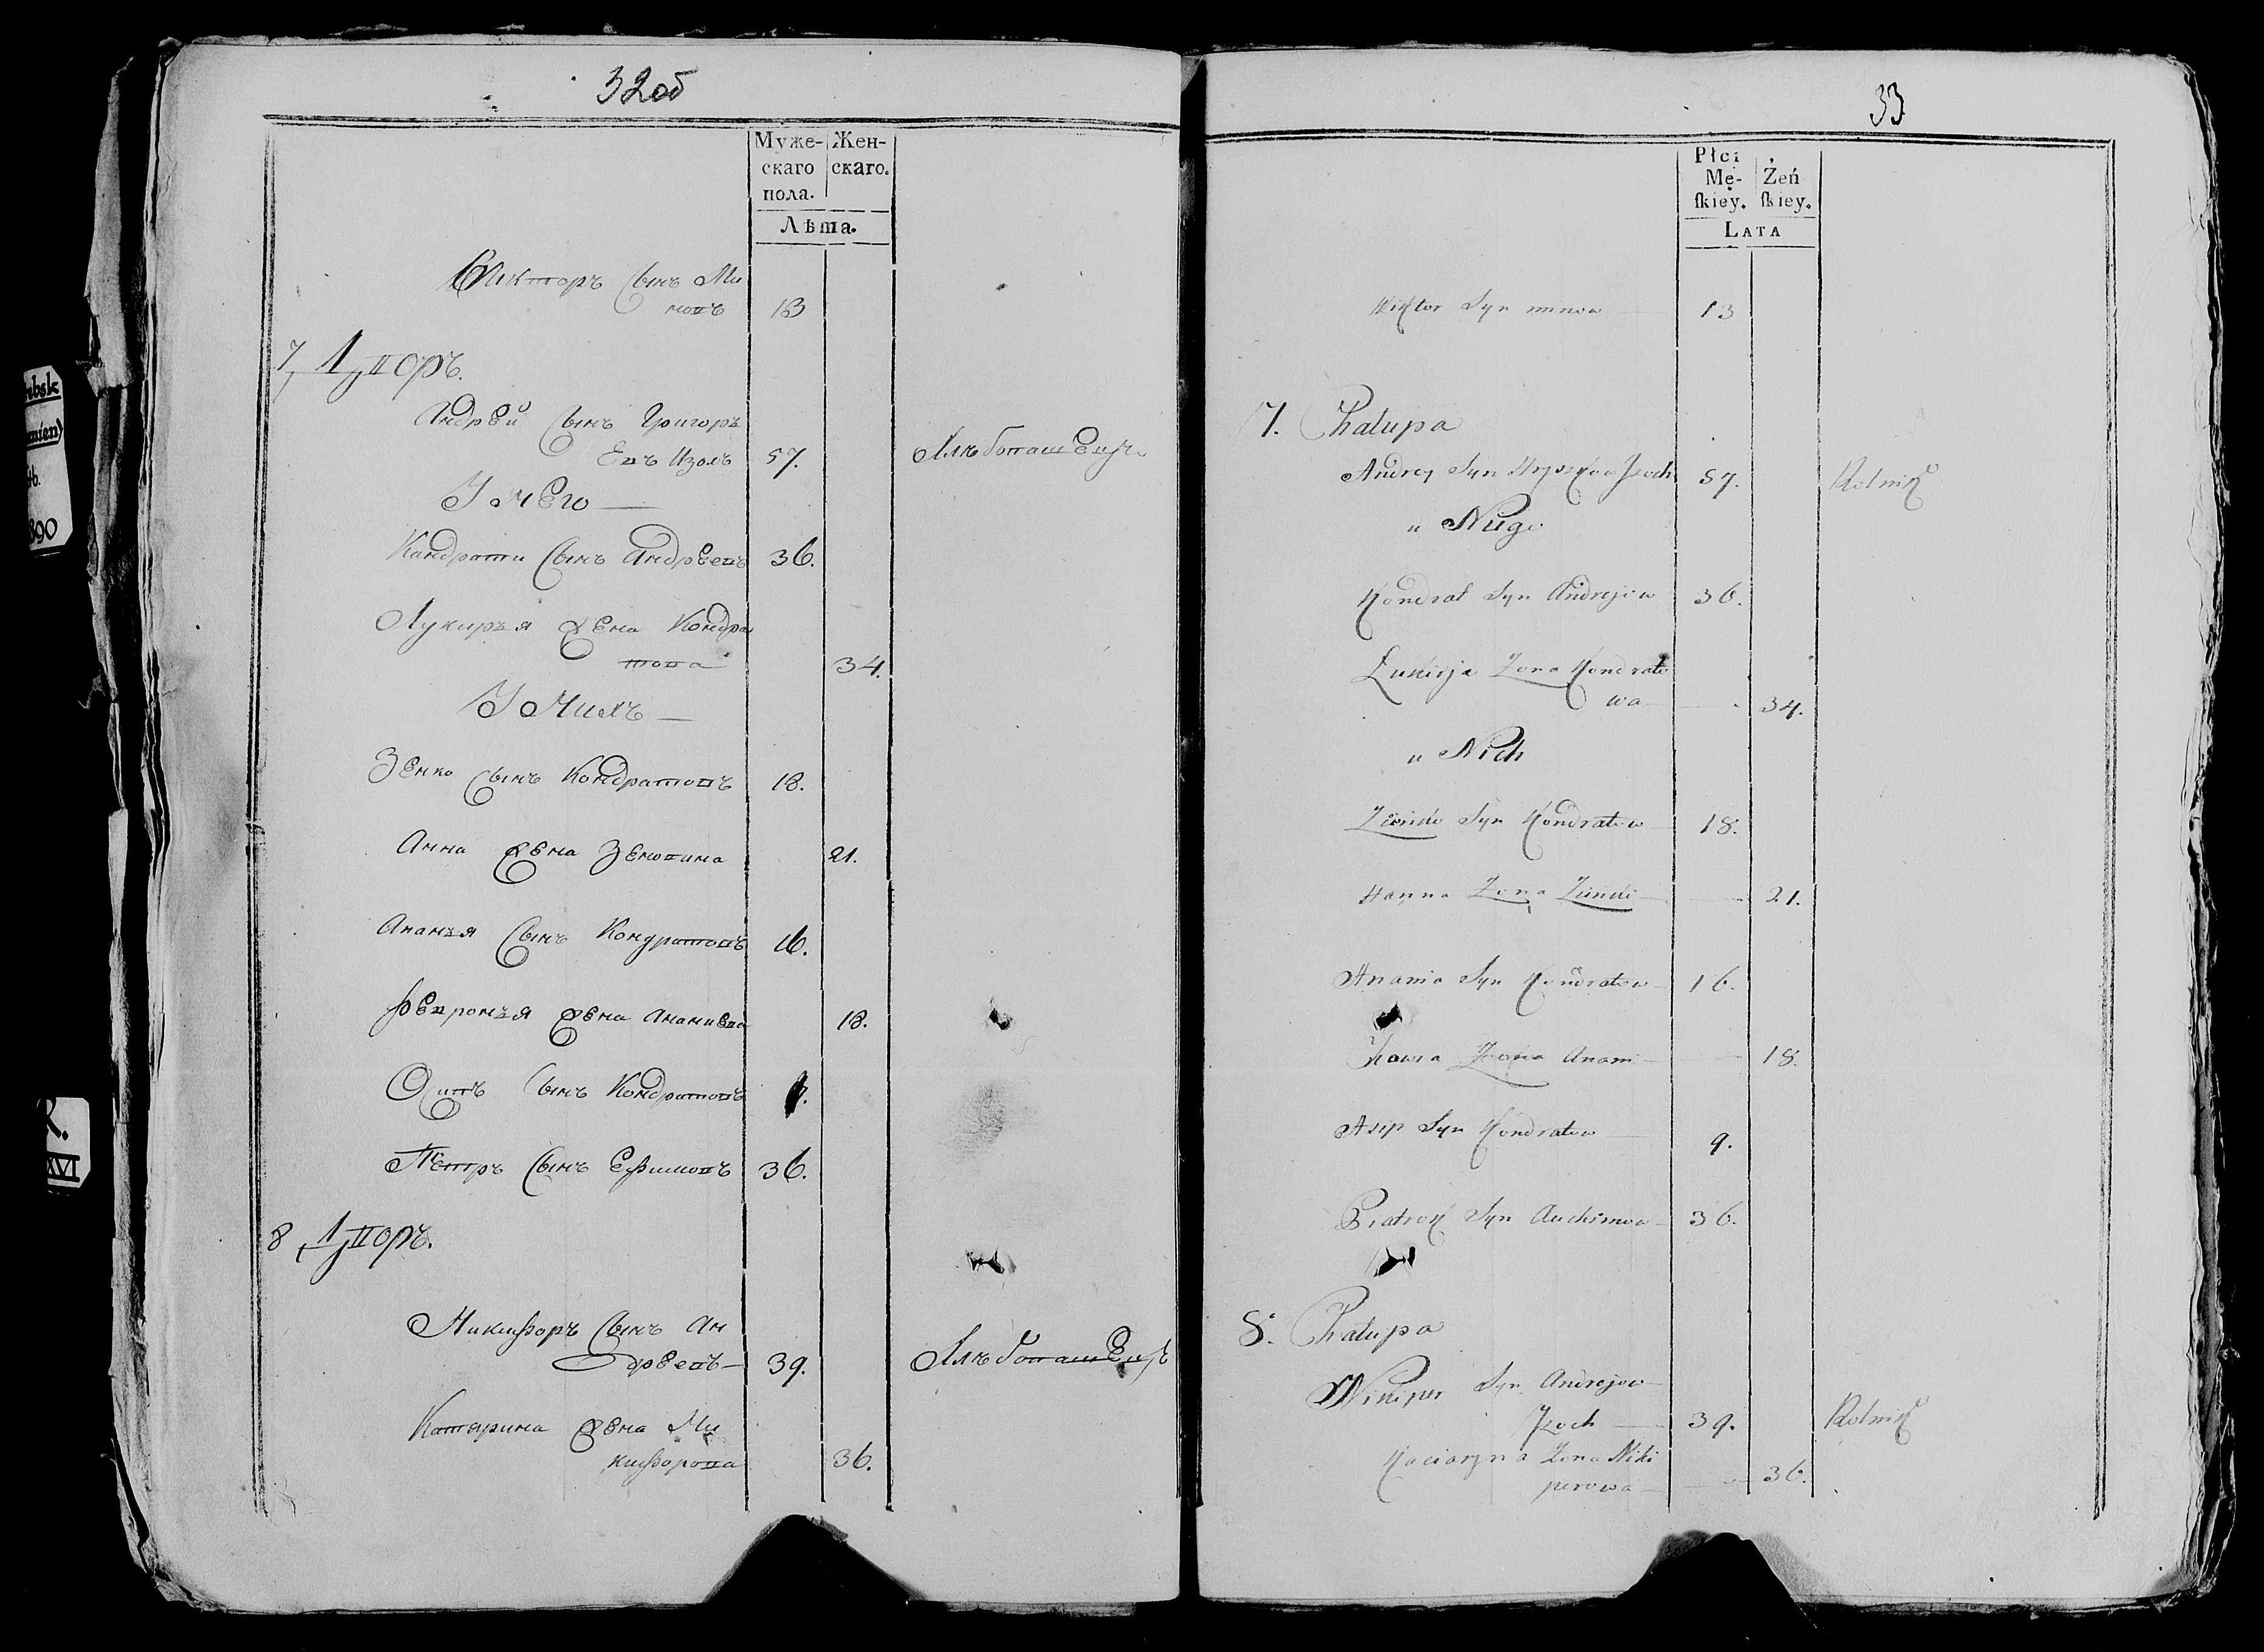 32об
Муже- Жен-
скаго скаго.
пола.
Лѣта.
Викторъ Сынъ Ми
новъ 13
7 Дворъ.
Андрей Сынъ Григорь
Евъ Изохъ 57.
У Него —
Кондрати Сынъ Андрѣевъ 36.
Лукирья Жена Кондра
това 34.
У Нихъ —
Зенко Сынъ Кондратовъ 18.
Анна Жена Зенковина 21.
Ананья Сынъ Кондратовъ 16.
Февронья Жена Ананиева 18.
Осипъ Сынъ Кондратовъ 9.
Петръ Сынъ Ефимовъ 36.
8 Дворъ.
Никифоръ Сынъ Ан
дрѣевъ — 39. Хлѣбопашецъ
Катерина Жена Ни
кифорова 36.
33
Płci
Mę- Żeń
ſkiey. ſkiey.
LATA
Wiktor Syn minow 13
7. Chalupa
Andrey Syn Hryszkow Jzoch 57. Rolnik
u Niego
Kondrat Syn Andrejow 36.
Łukirja Zona Kondrato
wa 34.
u Nich
Syn Kondratow 18.
Hanna Zona 21.
Anania Syn Kondratow 16.
Zona Anani 18.
Asip Syn Kondratow 9.
Piatrok Syn Auchimow 36.
8. Chalupa
Nikiper Syn Andrejow
Jzoch 39. Rolnik
Kaciaryna Zona Niki
perowa 36.